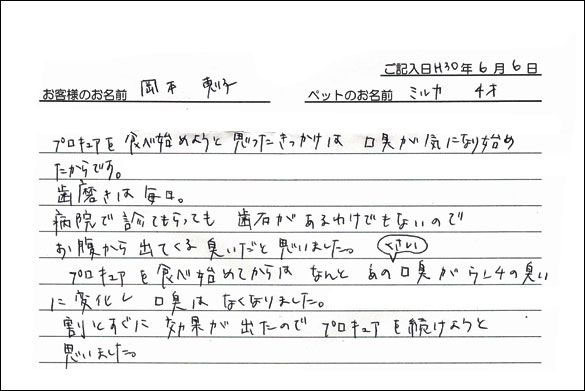 ご記入日H30年6月6日
お客様のお名前 岡本 恵子 ペットのお名前 ミルカ 4才
プロキュアを食べ始めようと思ったきっかけは 口臭が気になり始め
たからです。
歯磨きは毎日。
病院で診てもらっても 歯石があるわけでもないので
お腹から出てくる臭いだと思いました。
くさい
プロキュアを食べ始めてからは なんと あの口臭がらしの臭い
に変化し 口臭はなくなりました。
割とすぐに 効果が出たので プロキュアを続けようと
思いました。